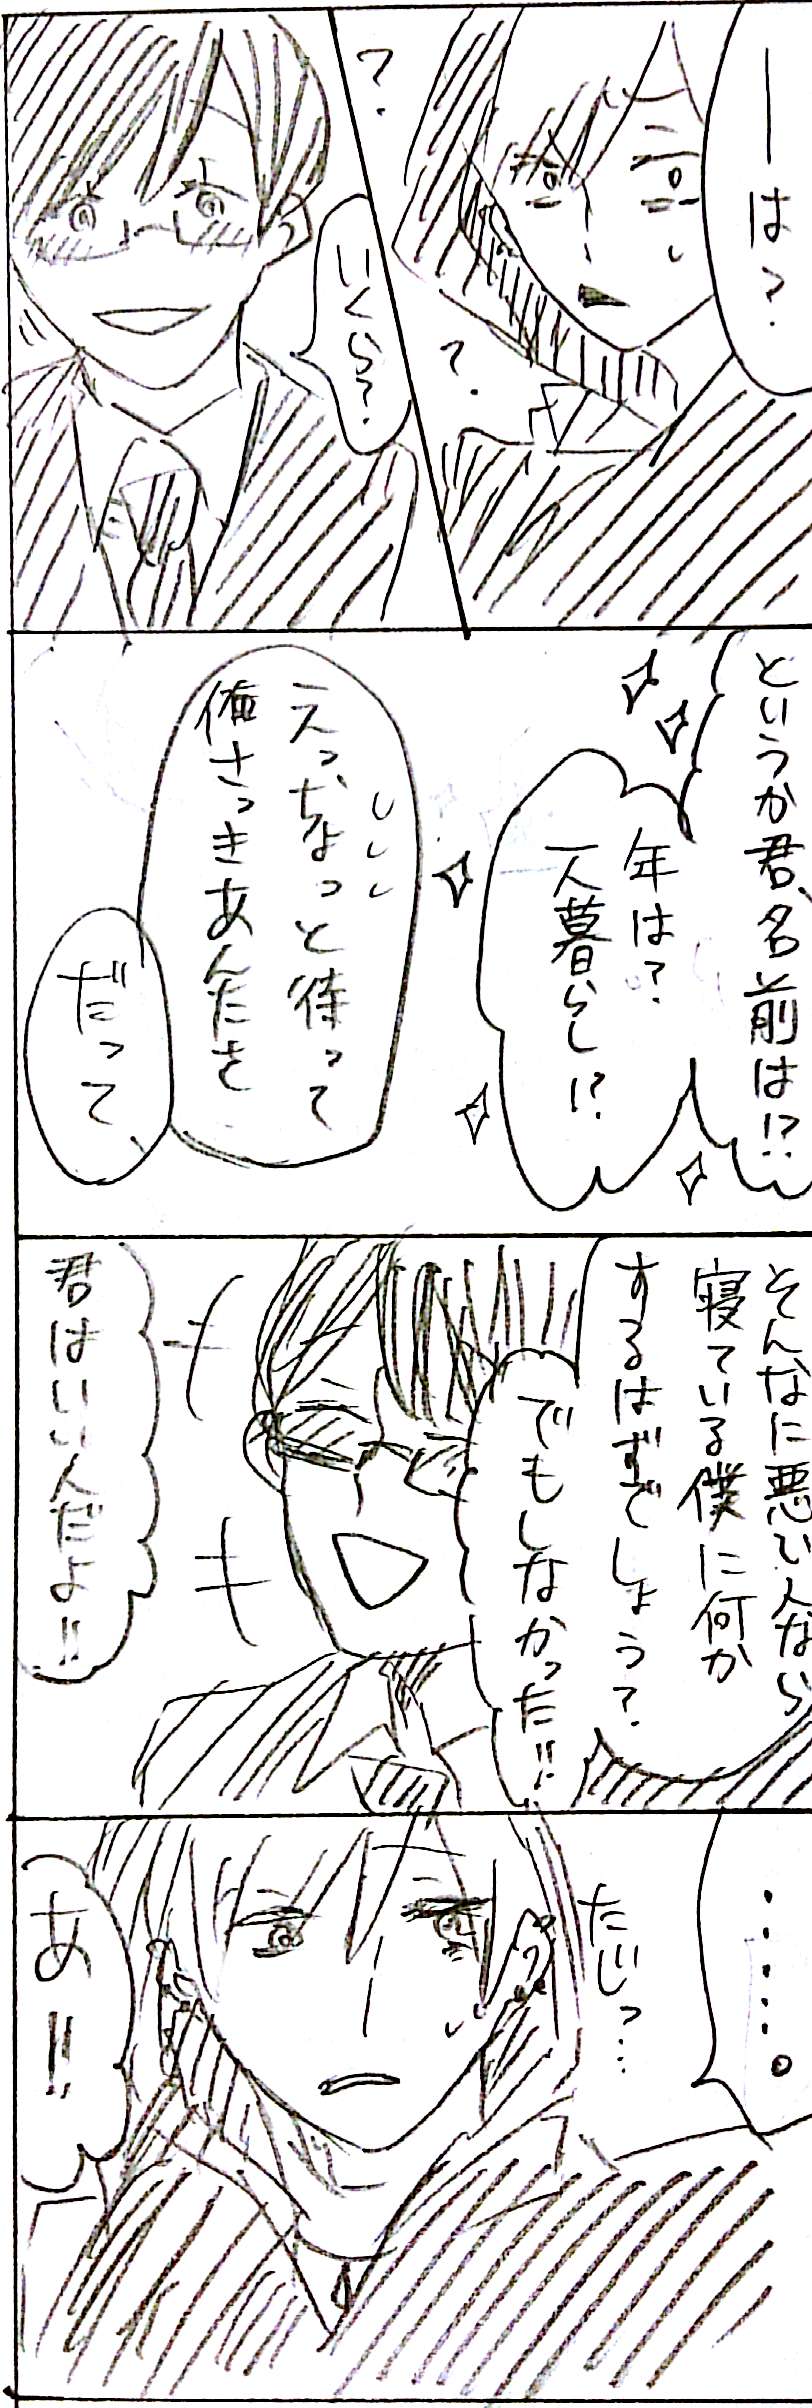 ーは?
?
?
いくら?
というか君、名前は!?
年は?
一人暮らし!?
えっ、ちょっと待って
俺さっきあんたを
だって
そんなに悪い人なら
寝ている僕に何か
するはずでしょう?
でもしなかった!!
君はいい人だよ!!
・・・・・。
たじっ…
あ!!